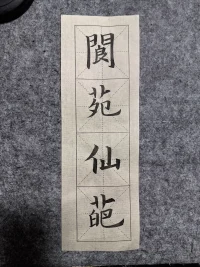 閬苑仙葩